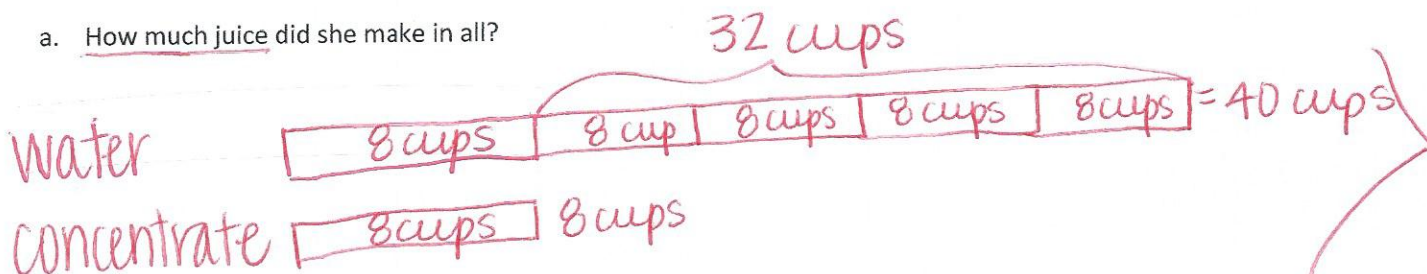 a. How much juice did she make in all?
32 cups
water 8 cups 8 cup 8 cups 8 cups 8 cups = 40 cups
concentrate 8 cups 8 cups